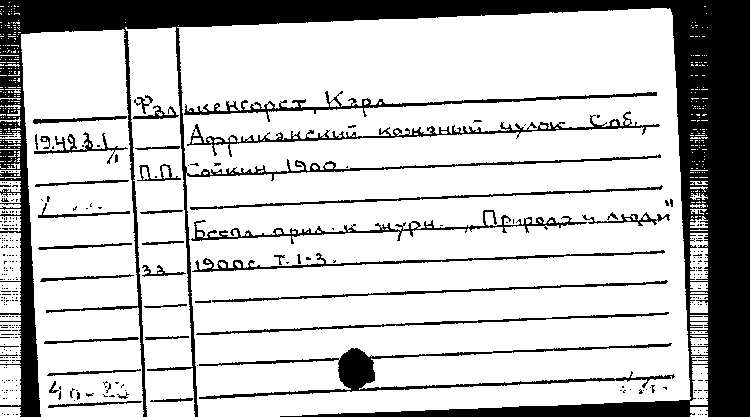 Фалькенгорст, Карл
19.42.3.1/ Африканский кожаный чулок. Спб.,
П.П. Сойкин, 1900.
Беспл. прил. к журн. „Природа и люди"
за 1900г. Т. 1-3.
40-23